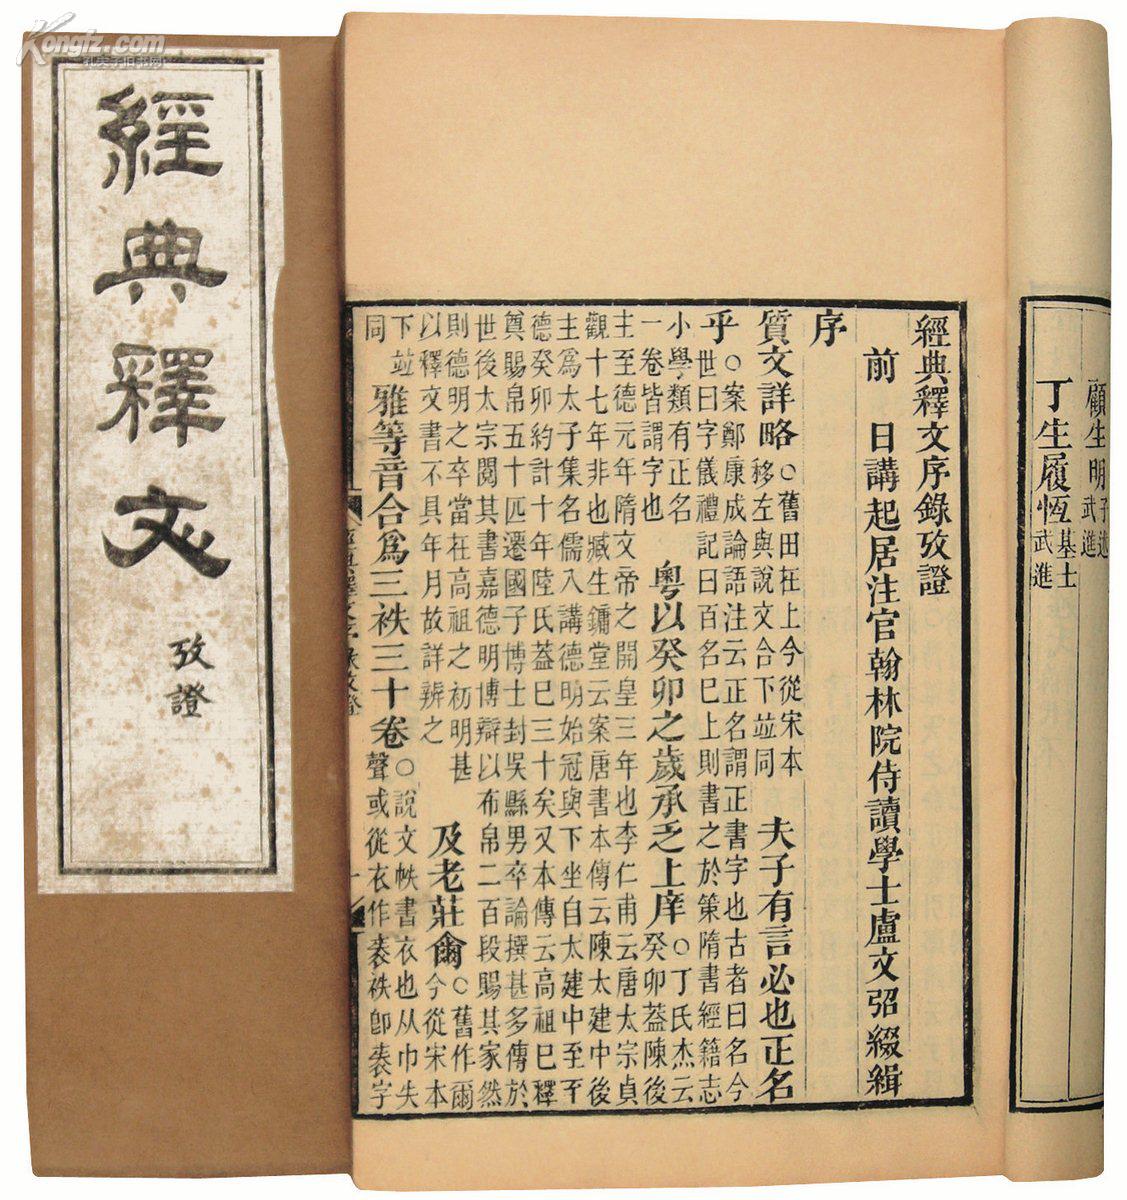 經典釋文
攷證
顧生明 子述 武進
丁生履恆 基士 武進
經典釋文序錄攷證
前 日講起居注官翰林院侍讀學士盧文弨綴緝
序
質文詳略 ○舊田在上今從宋本移左與說文合下竝同 夫子有言必也正名
乎 ○案鄭康成論語注云正名謂正書字也古者曰名今世曰字儀禮記曰百名已上則書之於策隋書經籍志
小學類有正名一卷皆謂字也 粵以癸卯之歲承乏上庠 ○丁氏杰云癸卯蓋陳後
主至德元年隋文帝之開皇三年也李仁甫云唐太宗貞觀十七年非也臧生鏞堂云案唐書本傳云陳太建中後
主爲太子集名儒入講德明始冠與下坐自太建中至至德癸卯約計十年陸氏蓋已三十矣又本傳云高祖已釋
奠賜帛五十匹遷國子博士封吳縣男卒論撰甚多傳於世後太宗閱其書嘉德明博辯以布帛二百段賜其家然
則德明之卒當在高祖之初明甚以釋文書不具年月故詳辨之 及老莊 ○舊作爾今從宋本
下竝同 雅等音合爲三袟三十卷 ○說文帙書衣也从巾失聲或從衣作袠袟卽袠字
Kongfz.com
孔夫子旧书网